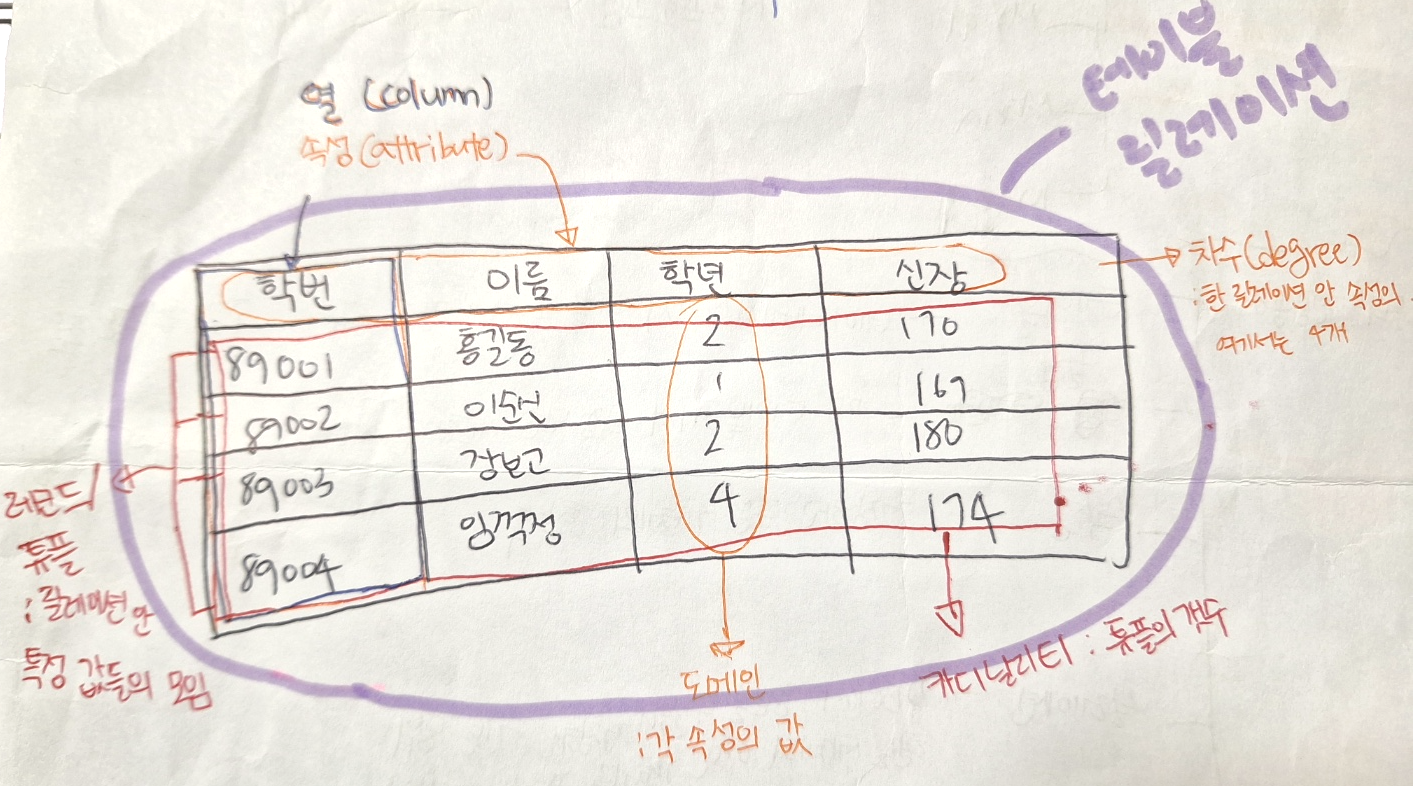 테이블
릴레이션
열 (column)
속성(attribute)
학번 이름 학년 신장
89001 홍길동 2 170
89002 이순신 1 169
89003 장보고 2 180
89004 임꺽정 4 174
차수(degree)
: 한 릴레이션 안 속성의
여기서는 4개
레코드
튜플
: 릴레이션 안
특정 값들의 모임
도메인
: 각 속성의 값
카디날리티 : 튜플의 갯수